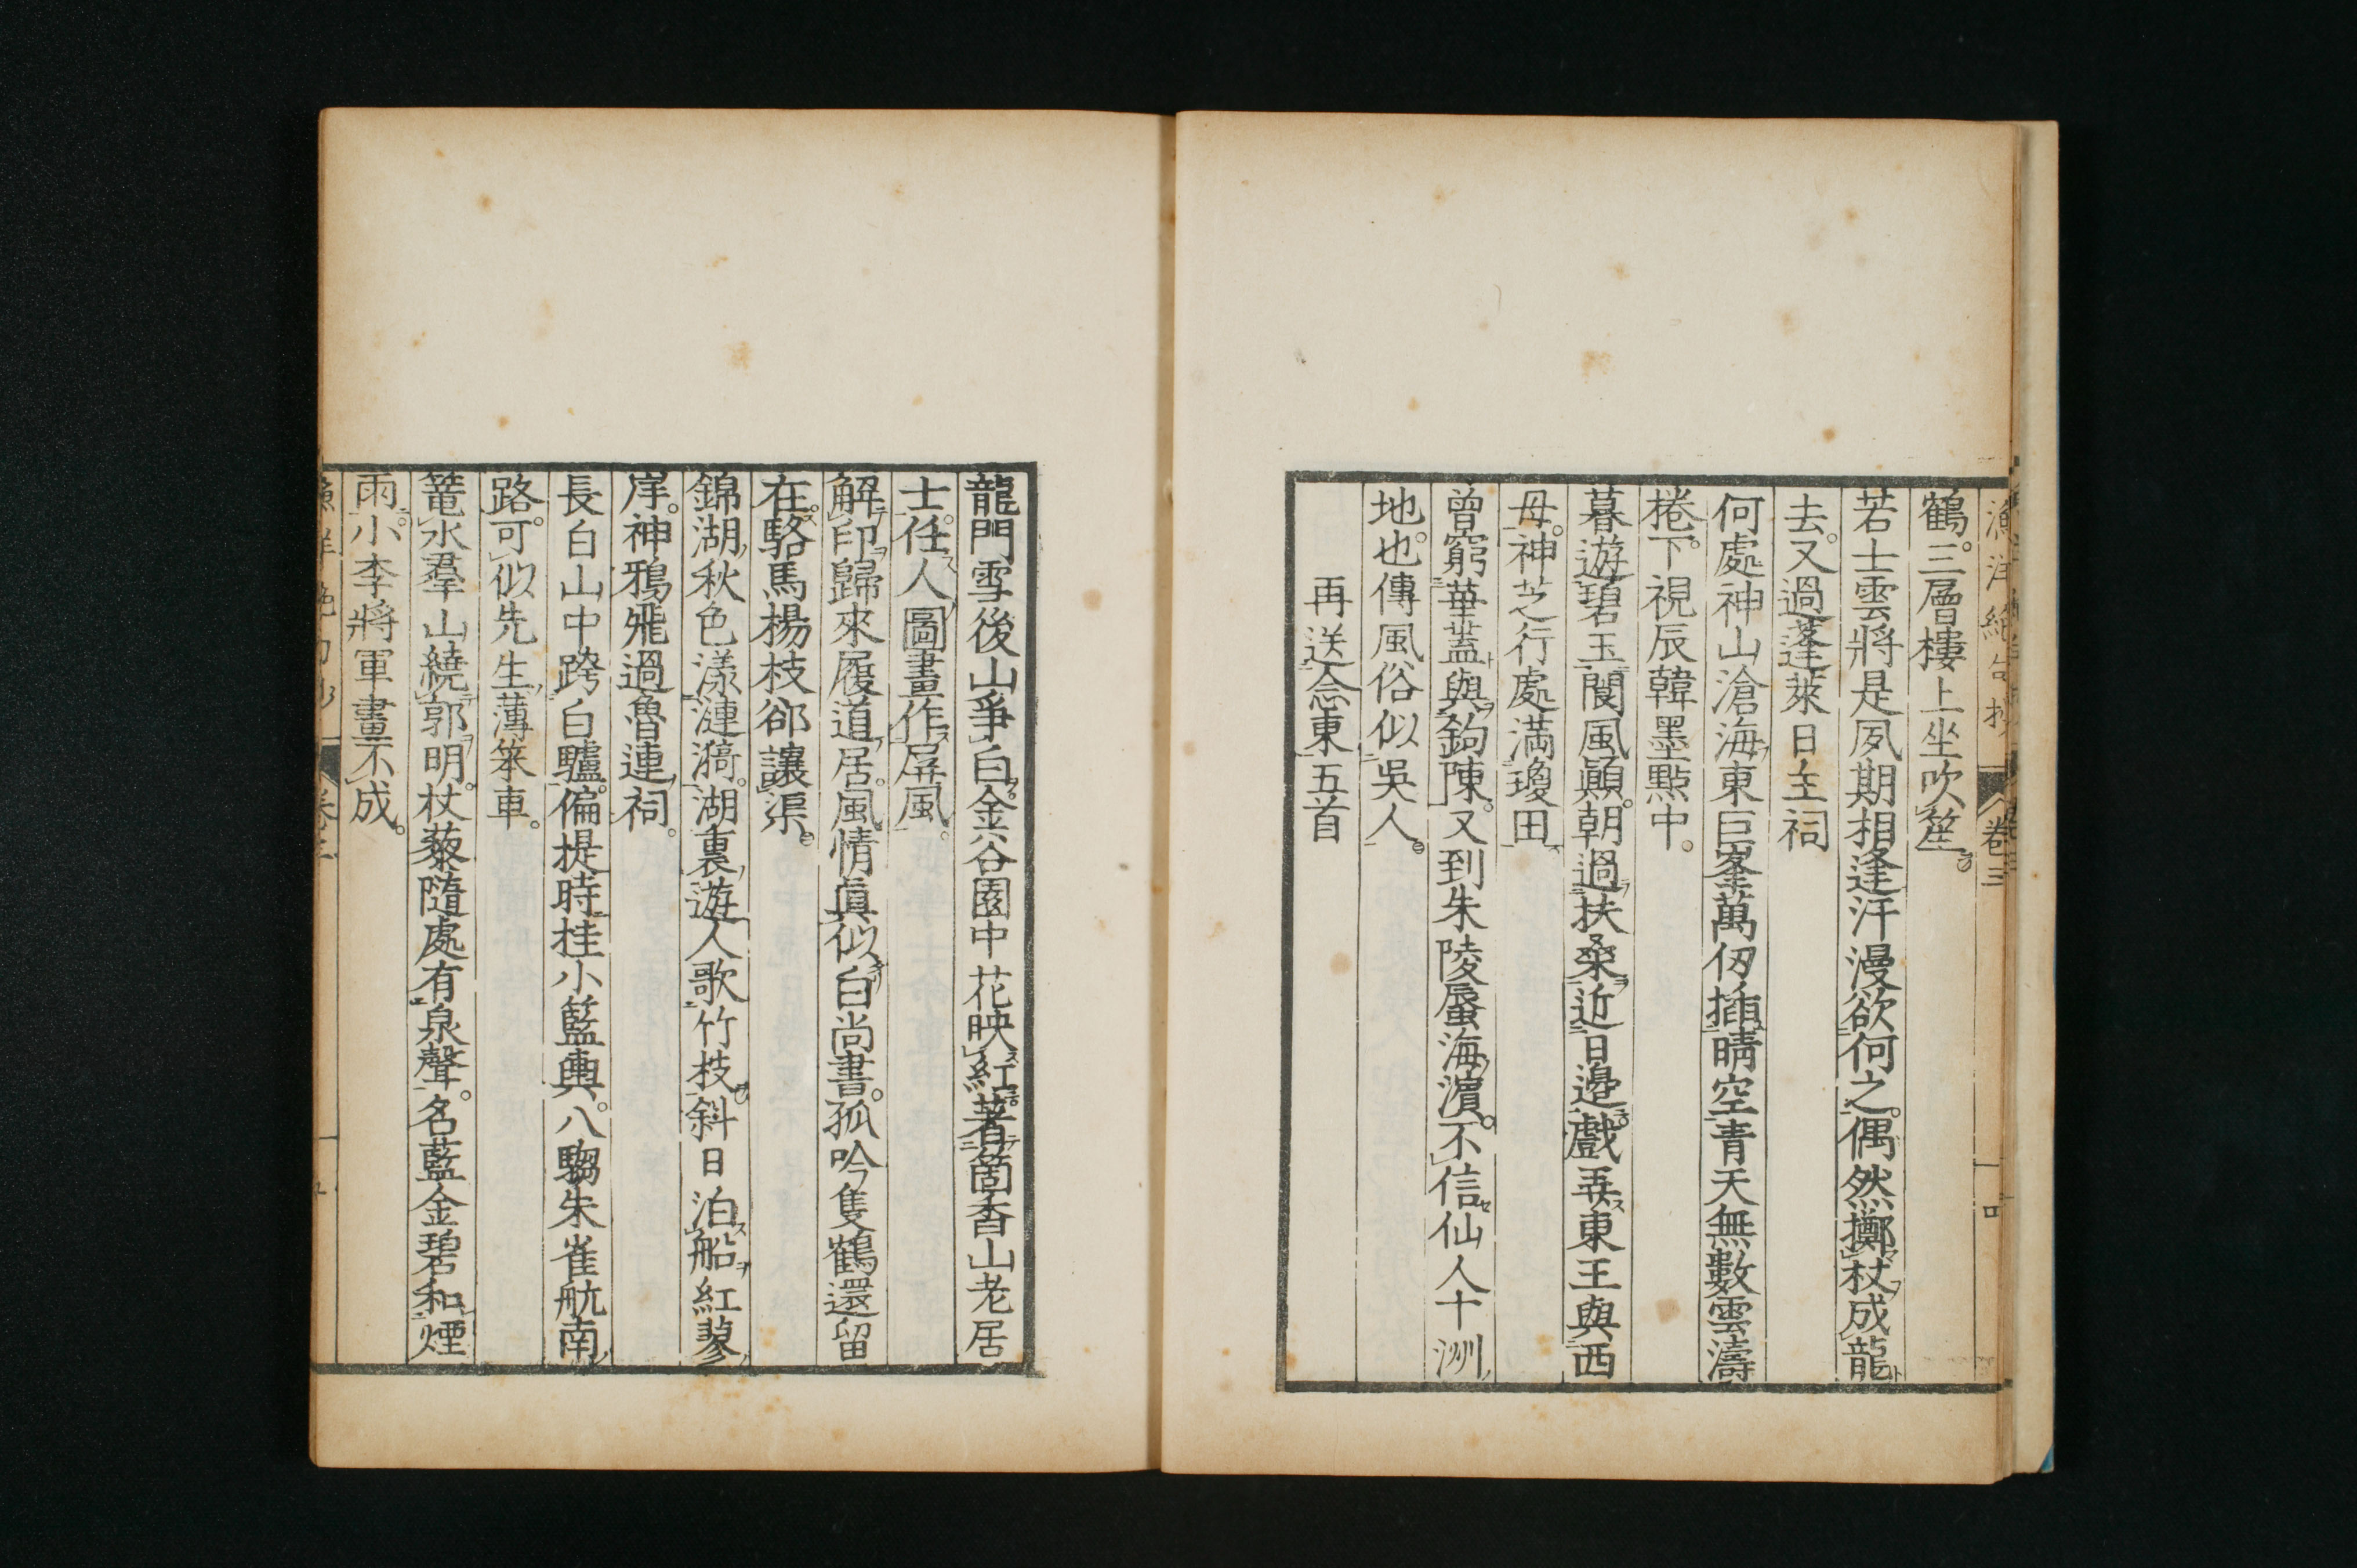 漁洋絶句抄 卷三
鶴。三層樓上坐吹笙。
若士雲將是夙期相逢汗漫欲何之。偶然擲杖成龍
去。又過蓬萊日主祠
何處神山滄海東巨峯萬仭插晴空青天無數雲濤
捲。下視辰韓墨點中。
暮遊碧玉閬風顚。朝過扶桑近日邊。戲弄東王與西
母。神芝行處滿瓊田
曾窮華蓋與鉤陳。又到朱陵蜃海濵。不信仙人十洲
地。也傳風俗似吳人。
再送念東五首
龍門雪後山爭白。金谷園中花映紅。著箇香山老居
士。任人圖畫作屏風。
解印歸來履道居。風情眞似白尚書。孤吟隻鶴還留
在。駱馬楊枝郤讓渠。
錦湖秋色漾漣漪。湖裏遊人歌竹枝。斜日泊船紅蓼
岸。神鴉飛過魯連祠。
長白山中跨白驢。偏提時挂小籃輿。八騶朱雀航南
路。可似先生薄笨車。
篭水羣山繞郭明。杖藜隨處有泉聲。名藍金碧和煙
雨。小李將軍畫不成。